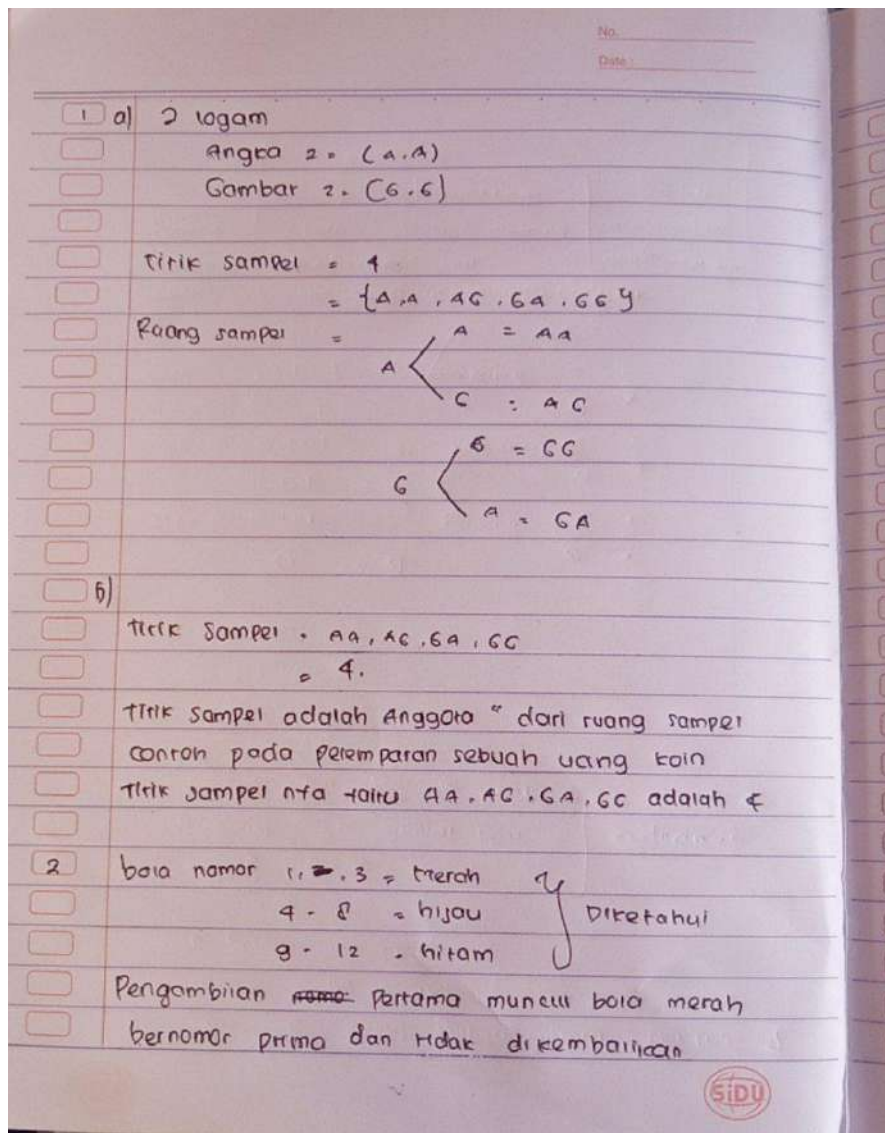 No.
Date :
1 a) 2 logam
Angka 2 = (A.A)
Gambar 2 = (G.G)
Titik sampel = 4
= {A,A , AG , GA , GG}
Ruang sampel =
A
A = AA
G : AG
G
G = GG
A = GA
b)
Titik Sampel = AA, AG, GA, GG
= 4.
Titik Sampel adalah Anggota " dari ruang sampel
contoh pada pelemparan sebuah uang koin
Titik sampel nya yaitu AA, AG, GA, GG adalah 4
2 bola nomor 1, 2, 3 = merah
4 - 8 = hijau
9 - 12 = hitam
} Diketahui
Pengambilan pertama muncul bola merah
bernomor prima dan tidak dikembalikan
SiDU